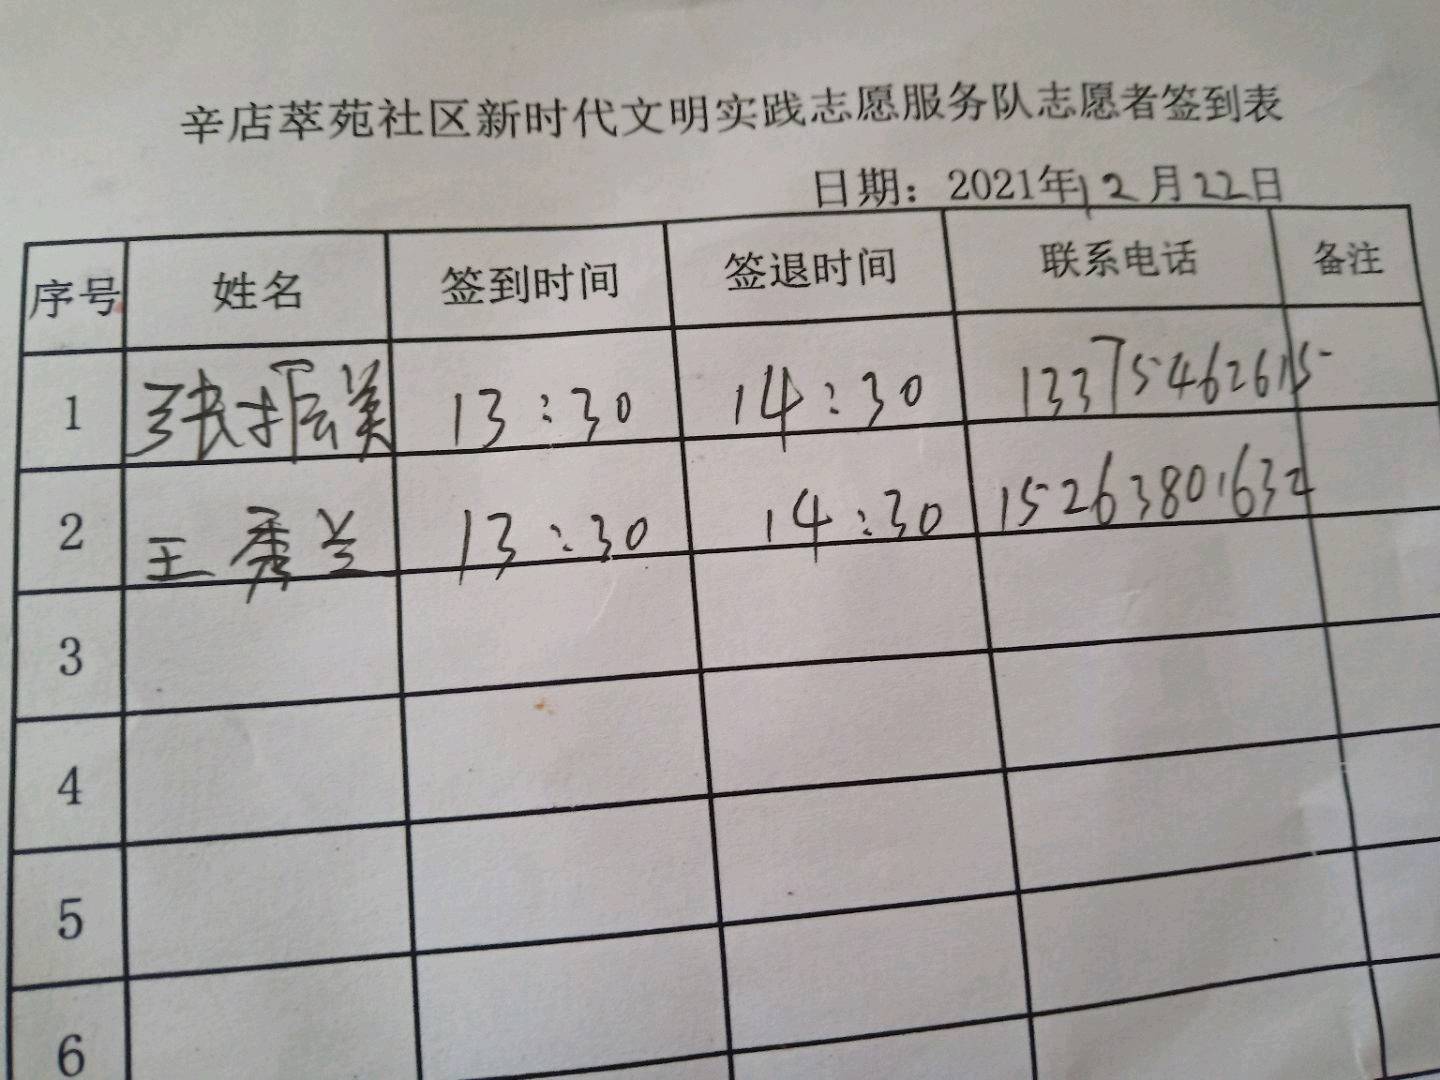 辛店萃苑社区新时代文明实践志愿服务队志愿者签到表
日期：2021年12月22日
序号 姓名 签到时间 签退时间 联系电话 备注
1 张振美 13:30 14:30 13375462615
2 王秀兰 13:30 14:30 15263801632
3
4
5
6